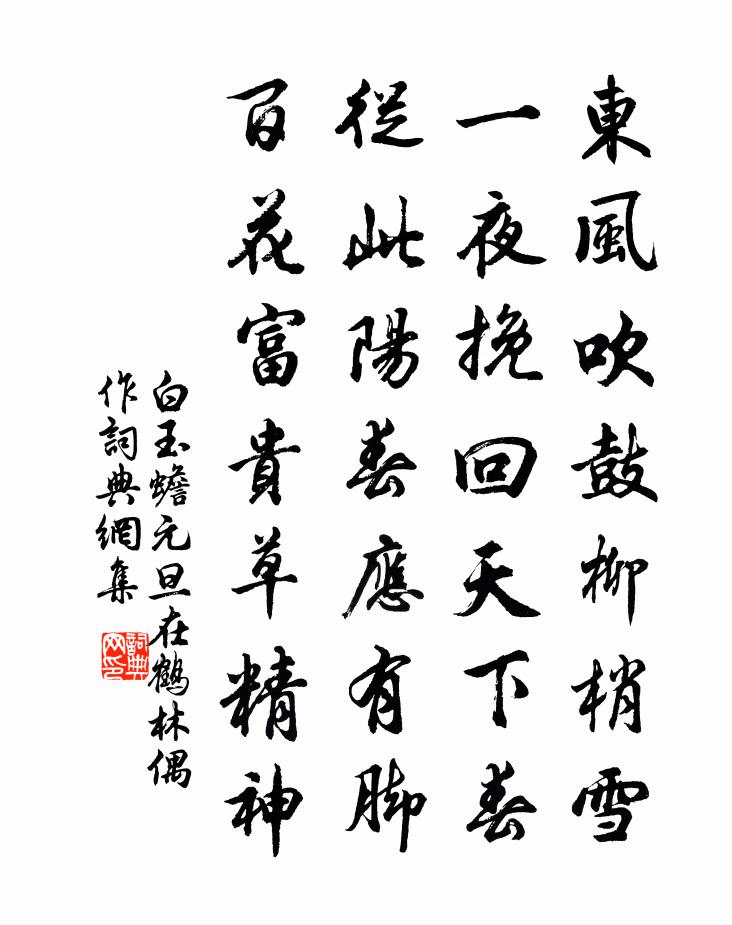 東風吹鼓柳梢雪
一夜挽回天下春
從此陽春應有脚
百花富貴草精神
白玉蟾元旦在鶴林偶
作詞典網集
詞典網印